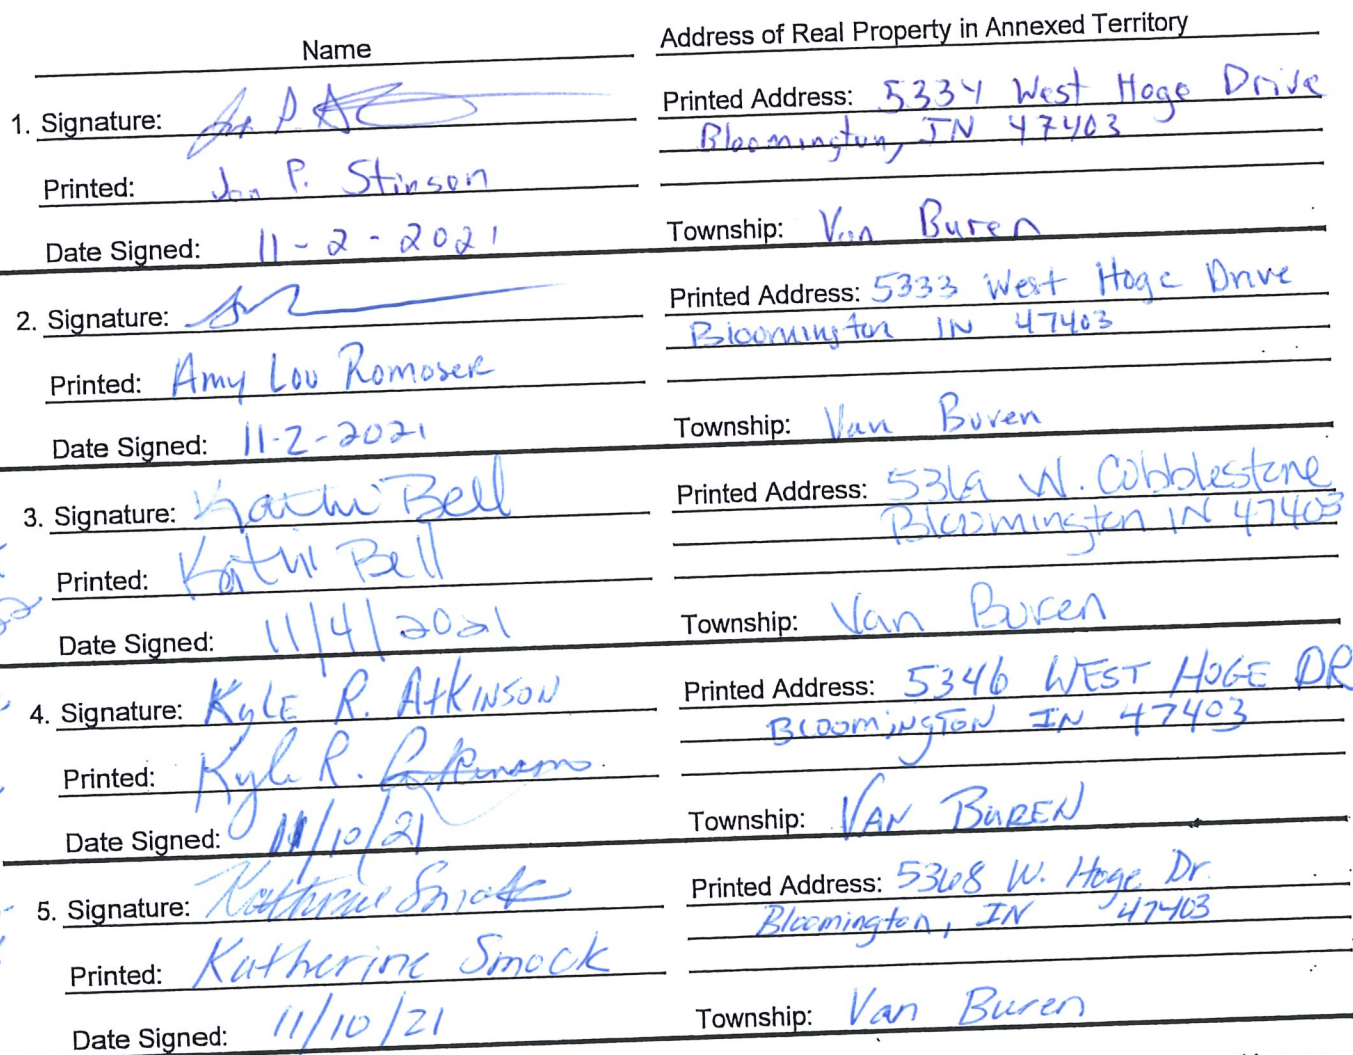 Name
Address of Real Property in Annexed Territory
1. Signature:
Printed: Jon P. Stinson
Date Signed: 11-2-2021
Printed Address: 5334 West Hoge Drive
Bloomington, IN 47403
Township: Van Buren
2. Signature:
Printed: Amy Lou Romoser
Date Signed: 11-2-2021
Printed Address: 5333 West Hoge Drive
Bloomington IN 47403
Township: Van Buren
3. Signature: Kathi Bell
Printed: Kathi Bell
Date Signed: 11/4/2021
Printed Address: W. Cobblestone
Bloomington IN 47403
Township: Van Buren
4. Signature: Kyle R. Atkinson
Printed: Kyle R. Atkinson
Date Signed: 11/10/21
Printed Address: 5346 WEST HOGE DR
BLOOMINGTON IN 47403
Township: VAN BUREN
5. Signature: Katherine Smock
Printed: Katherine Smock
Date Signed: 11/10/21
Printed Address: 5368 W. Hoge Dr.
Bloomington, IN 47403
Township: Van Buren